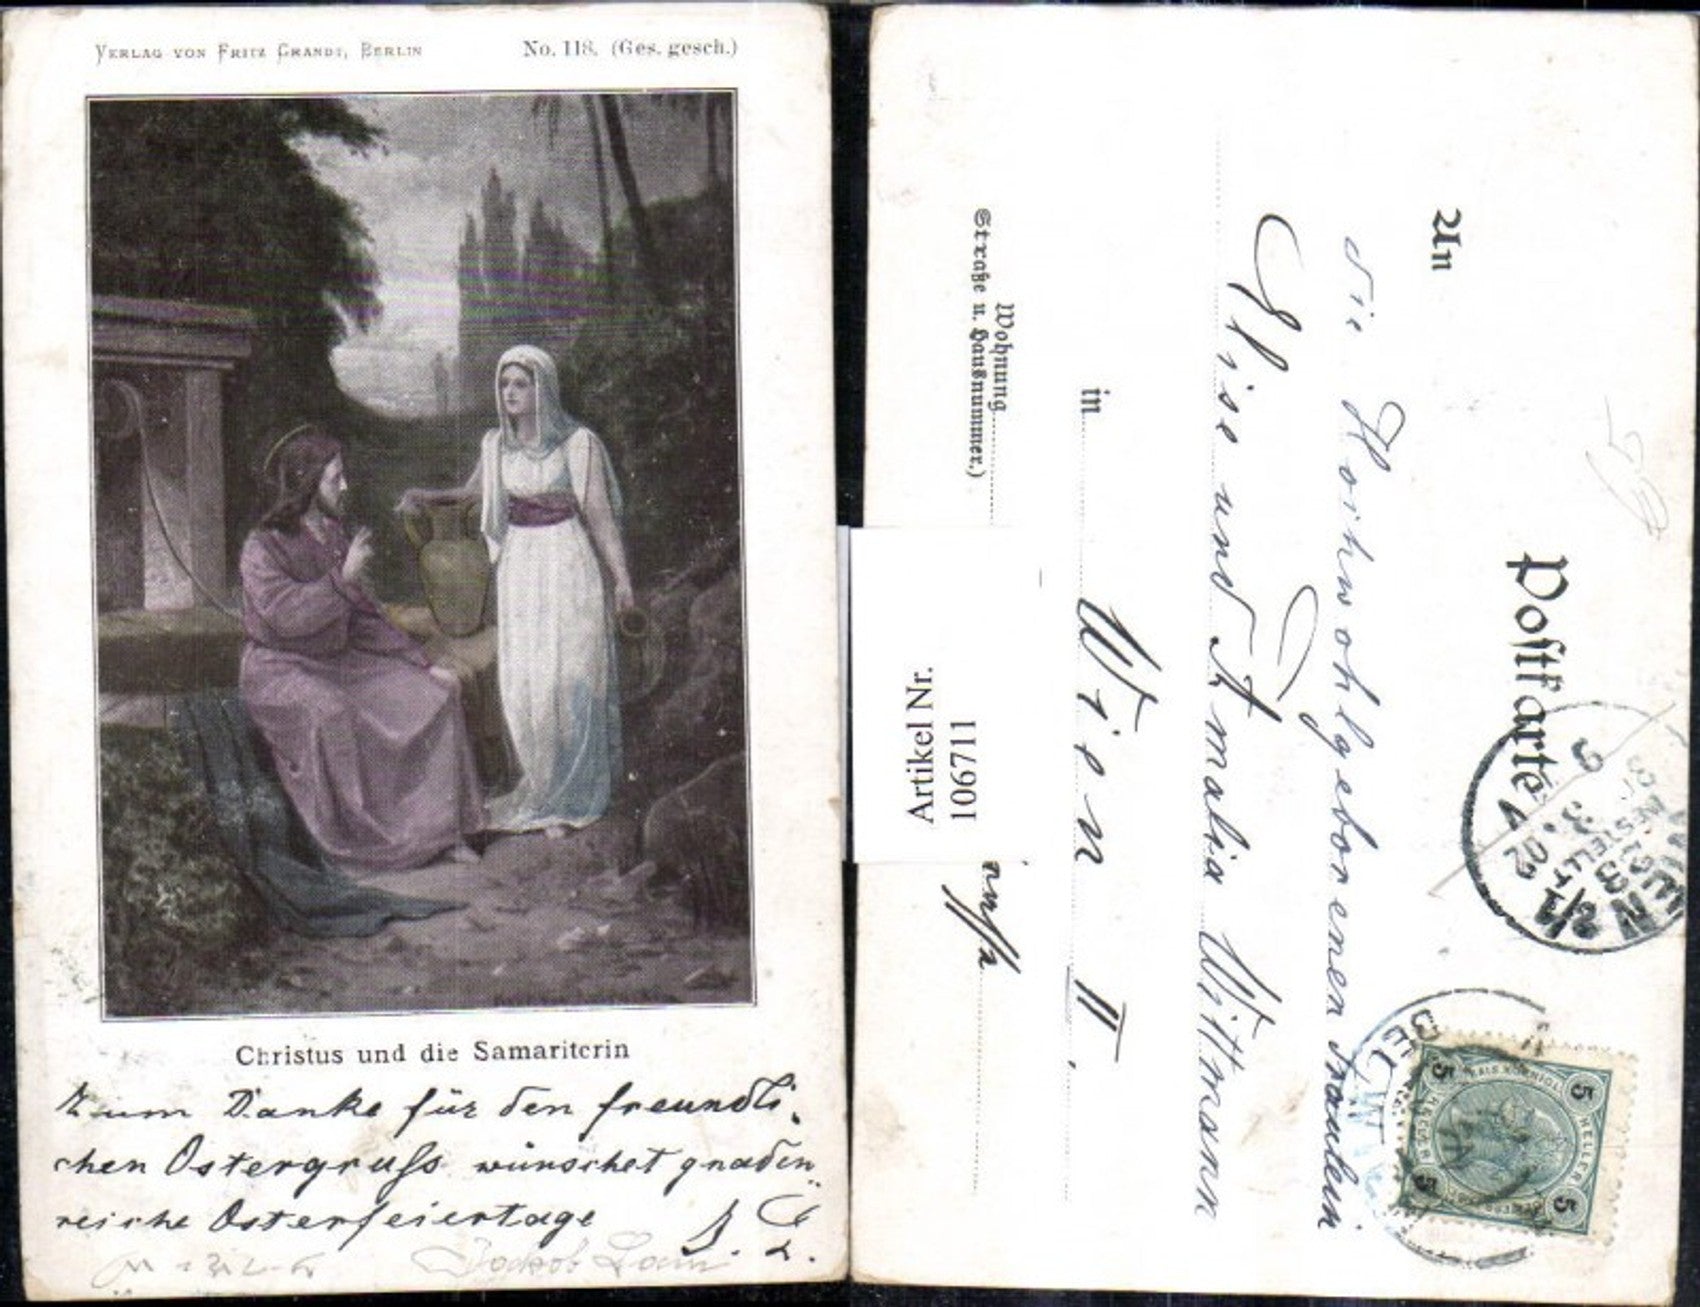 VERLAG VON FRITZ GRANDT, BERLIN
No. 118. (Ges. gesch.)
Christus und die Samariterin
Zum Danke für den freundli-
chen Ostergruß wünschet gnaden-
reiche Osterfeiertage
Jakob
Postkarte
An
die Hochwohlgeborenen Fräulein
Elise und Amalia Wittmann
in
Wien II.
Wohnung
(Straße u. Hausnummer.)
Artikel Nr.
106711
WIEN
BESTELLT
3. 02
5
5
5
5
HELLER